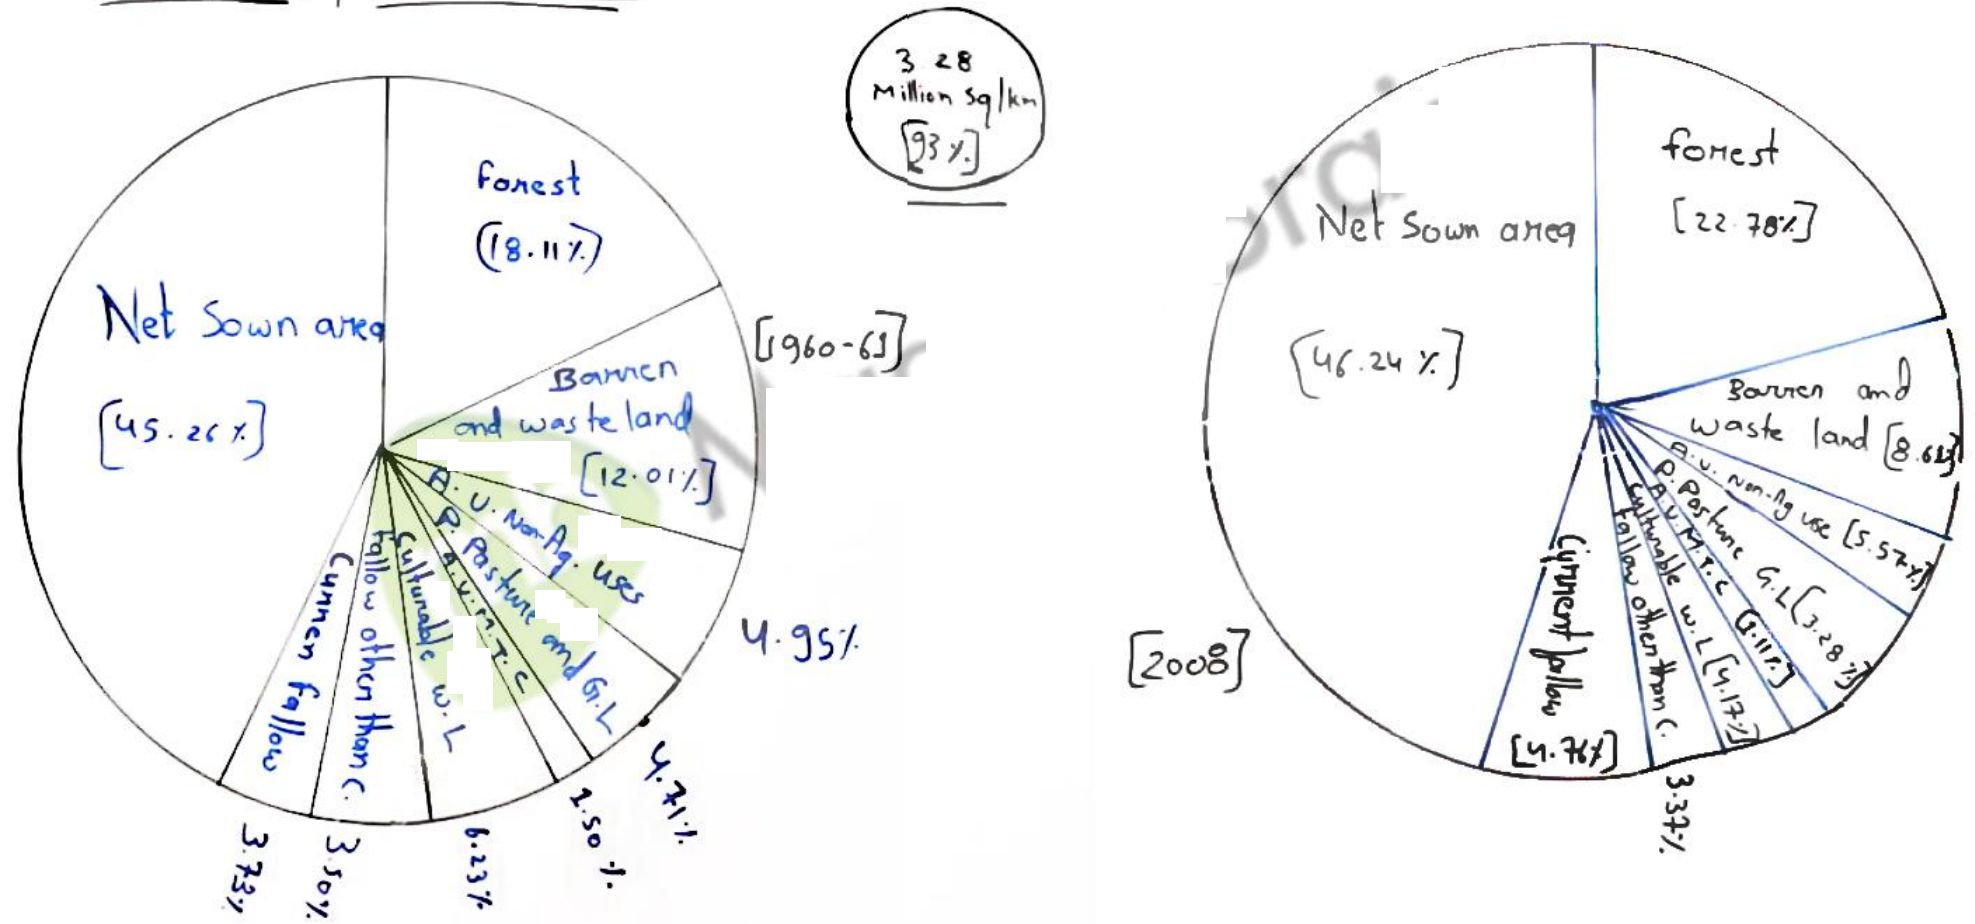 3.28
Million Sq/km
[93%]
Forest
(18.11%)
Net Sown area
[45.26%]
[1960-61]
Barren
and waste land
[12.01%]
A. U. Non-Ag. uses
4.95%
P. Pasture and G.L
4.71%
A.U.M.T.C
1.50%
Culturable W.L
6.23%
Fallow other than C.
3.50%
Curren fallow
3.73%
forest
[22.78%]
Net Sown area
[46.24%]
Barren and
waste land [8.61]
A.U. Non-Ag use [5.57%]
P. Pasture G.L [3.28%]
A.U.M.T.C [1.11%]
Culturable W.L [4.17%]
Fallow other than C.
3.37%
Current fallow
[4.76%]
[2008]